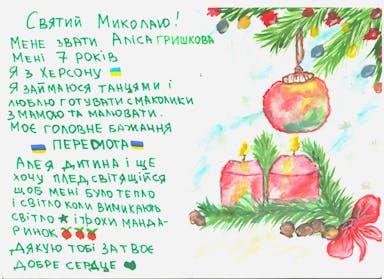 Святий Миколаю!
Мене звати Аліса Гришкова
Мені 7 років
Я з Херсону
Я займаюся танцями і
люблю готувати смаколики
з мамою та малювати.
Моє головне бажання
ПЕРЕМОГА
Але я дитина і ще
хочу плед, світящійся
щоб мені було тепло
і світло коли вимикають
світло і трохи манда-
ринок
Дякую тобі за твоє
добре серце